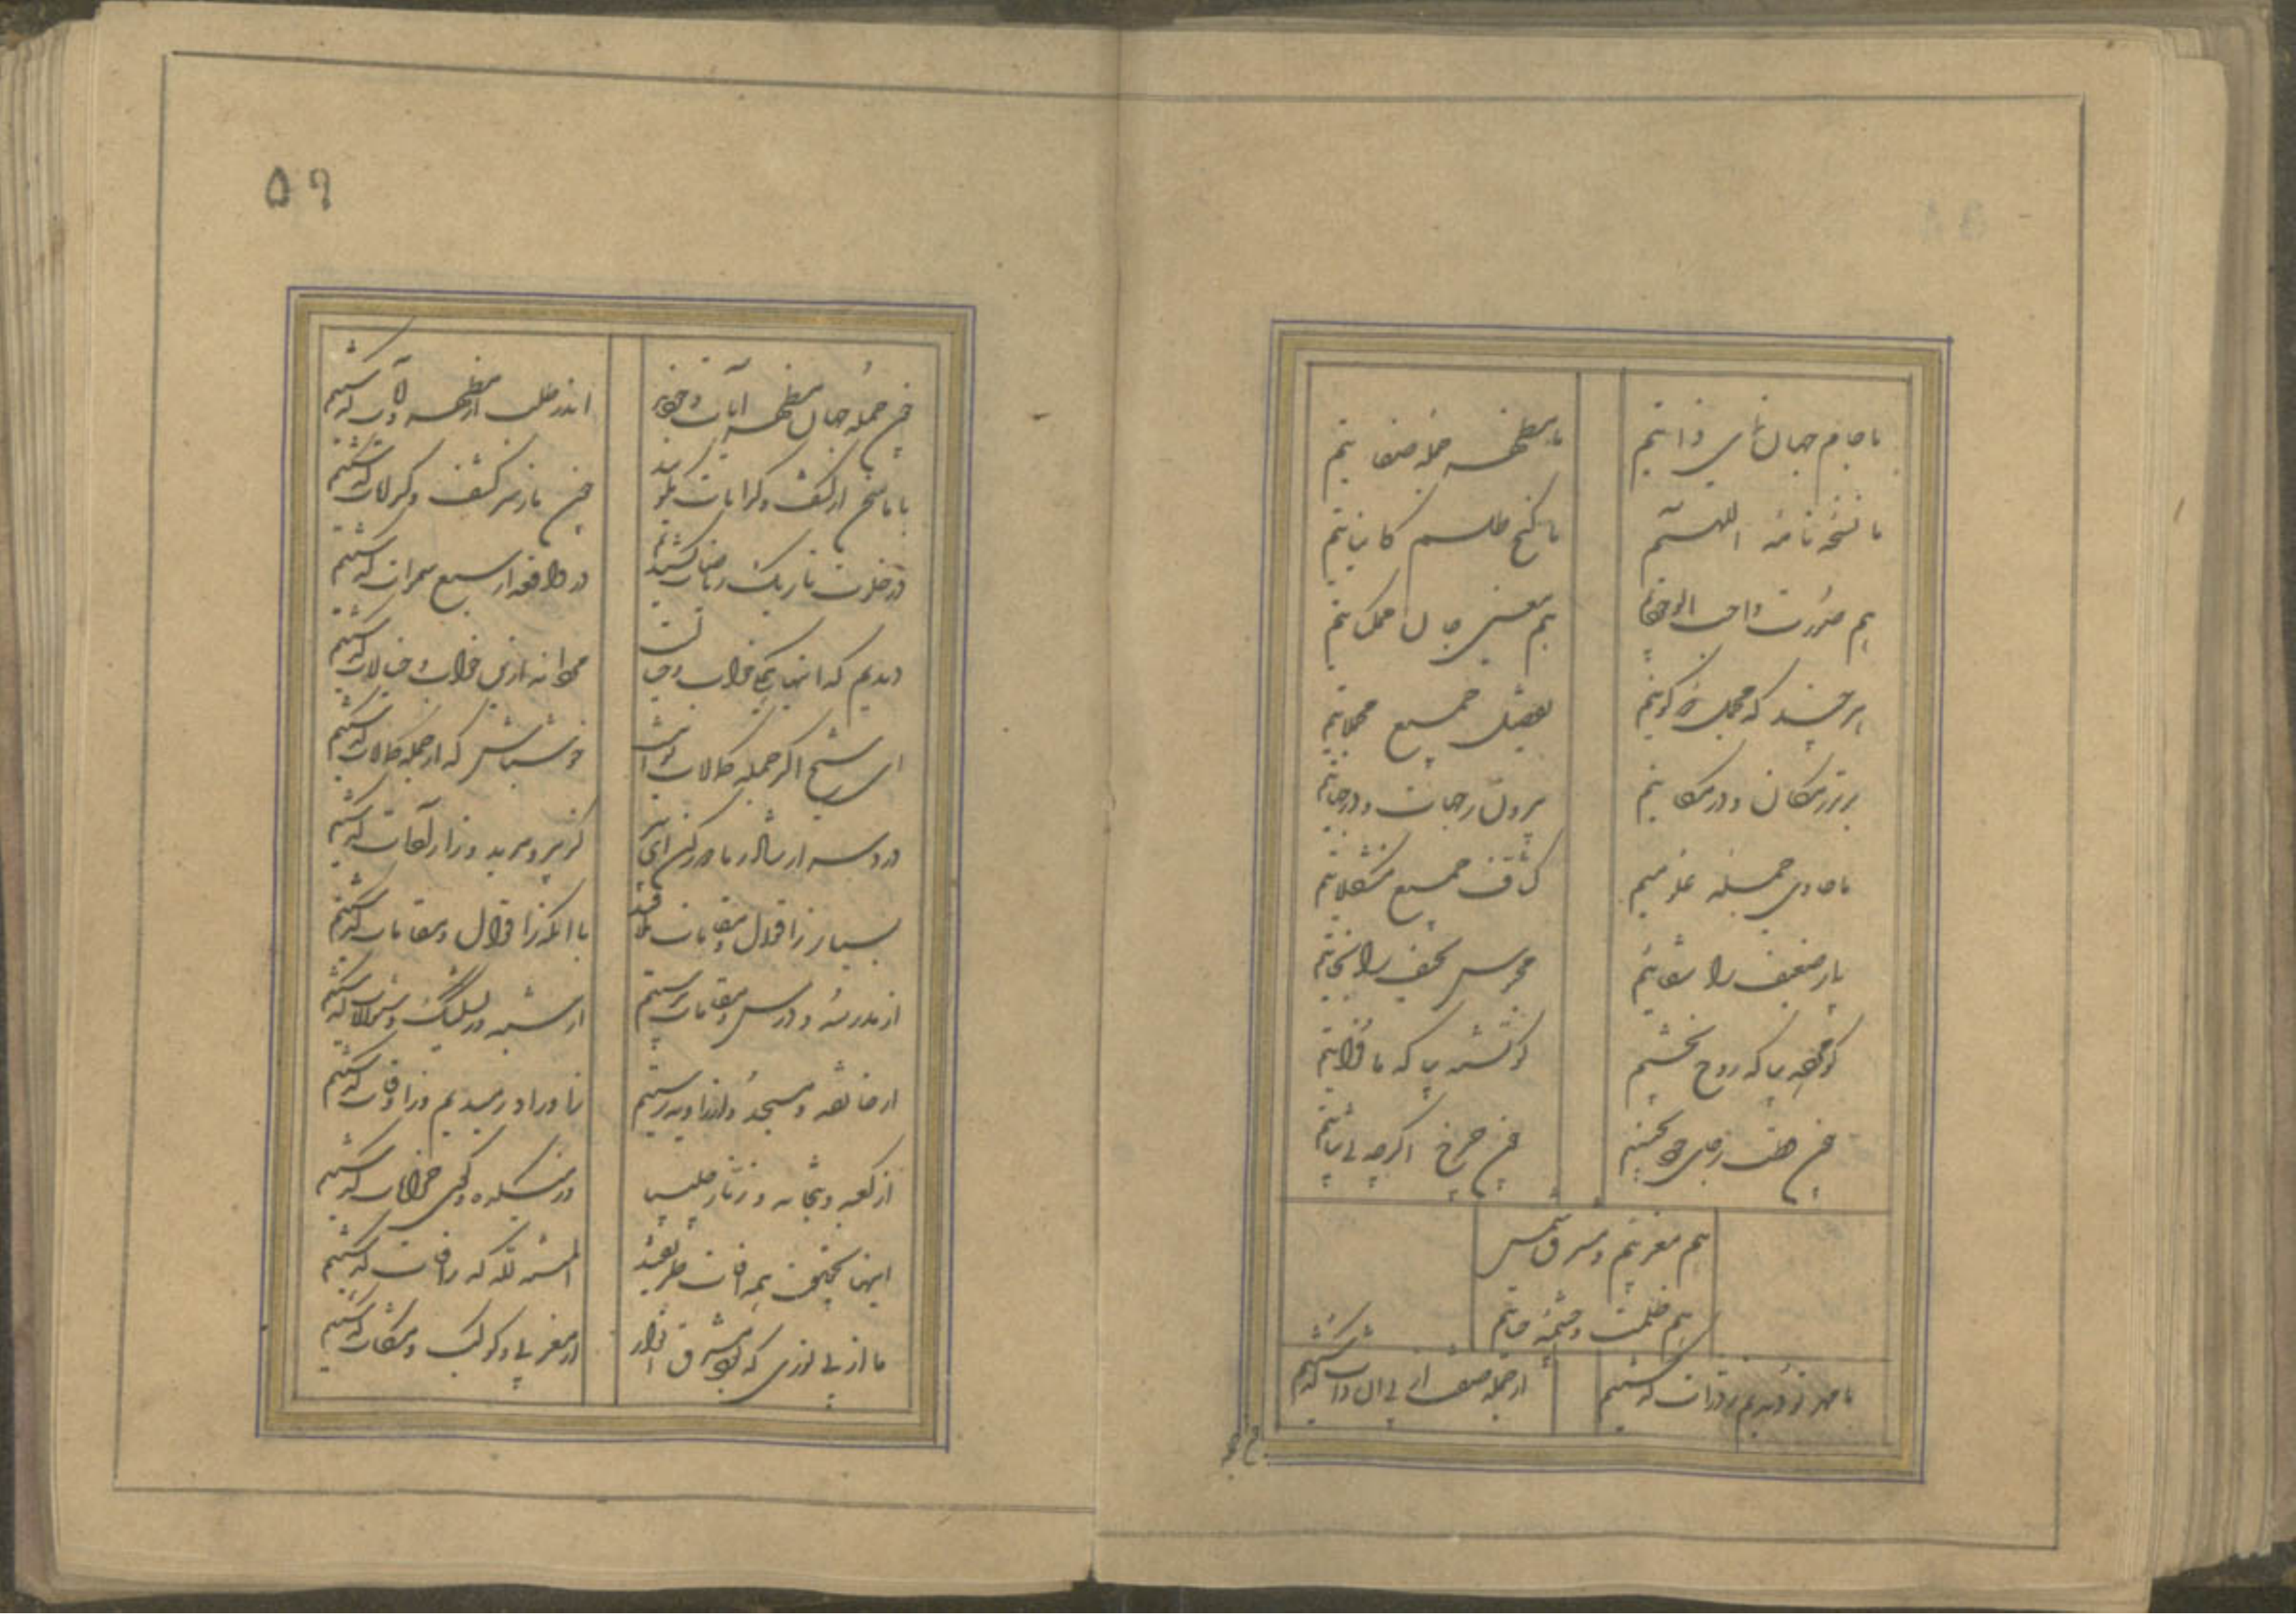 ما جام جهان نمای ذاتیم ما مظهر جمله صفاتیم
ما نسخه نامه الهیم ما کنج طلسم کایناتیم
هم صورت واجب الوجودیم هم معنی جان ممکناتیم
هر چند که مجمل دو کونیم تفصیل جمیع مجملاتیم
برتر ز مکان و در مکانیم بیرون ز جهات و در جهاتیم
ما حاوی جمله علومیم کشاف جمیع مشکلاتیم
بیمار ضعیف را شفائیم محبوس نحیف را نجاتیم
کو مرده بیا که روح بخشیم کو تشنه بیا که ما فراتیم
چون قطب ز جای خود نجنبیم چون چرخ اکرچه بی ثباتیم
هم مغربییم و مشرق شمس
هم ظلمت و چشمه حیاتیم
ما مهر تو دیدیم ز ذرات کذشتیم از جمله صفات از پی آن ذات کذشتیم
چون جمله
۵۹
چون جمله جهان مظهر آیات وجودند اندر طلب از مظهر و آیات کذشتیم
با ما سخن از کشف و کرامات مکویید چون ما ز سر کشف و کرامات کذشتیم
در خلوت تاریک ریاضات کشیدیم در واقعه از سبع سموات کذشتیم
دیدیم که اینها همکی خواب و خیالست مردانه ازین خواب و خیالات کذشتیم
ای شیخ اکر جمله کمالات تو اینست خوش باش که از جمله کمالات کذشتیم
ارشاد ز ما دور کن ای پیر کز پیر و مرید و ز کذشتیم
بسیار ز اقوال و مقامات ملافید با آنکه ز اقوال و مقامات کذشتیم
از مدرسه و درس و مقامات برستیم از شبهه و تشکیک و سوالات کذشتیم
از خانقه و مسجد و از زاویه رستیم ز اوراد رهیدیم و ز اوقات کذشتیم
از کعبه و بتخانه و زنار چلیپا در میکده و کوی خرابات کذشتیم
اینها بحقیقت همه آفات طریقند المنه لله که ز آفات کذشتیم
ما از پی نوری که بود مشرق انوار از مغربی و کوکب و مشکات کذشتیم